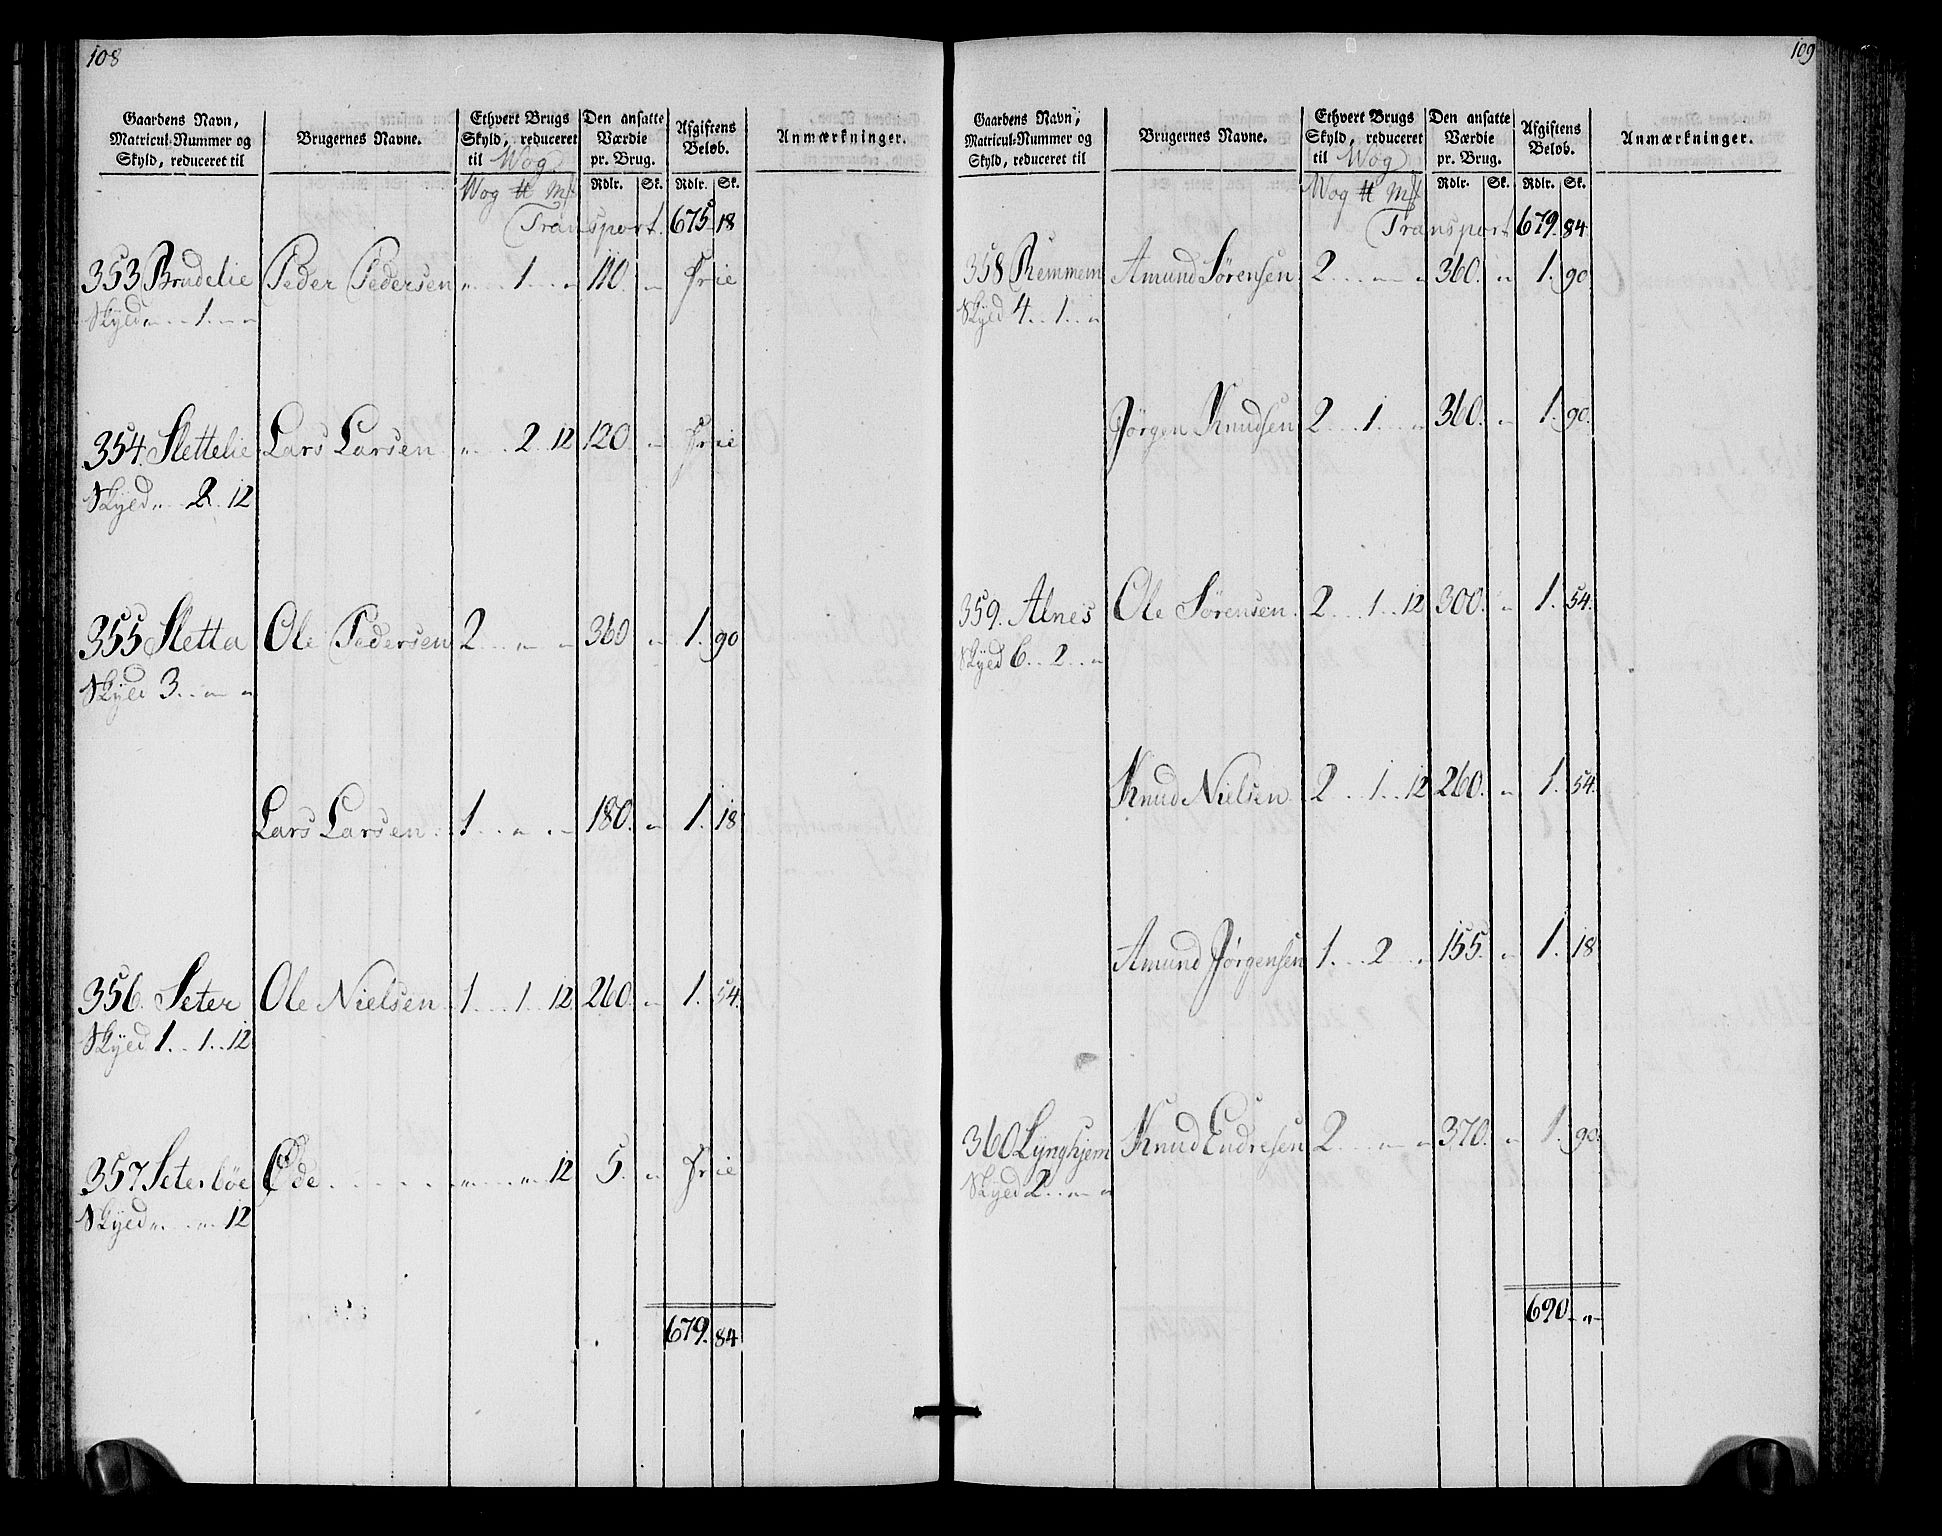 108
Gaardens Navn, Matricul-Nummer og Skyld, reduceret til | Brugernes Navne. | Ethvert Brugs Skyld, reduceret til Wog | Den ansatte Værdie pr. Brug. | Afgiftens Beløb. | Anmærkninger.
Wog ⌗ Mk | Rdlr. | Sk. | Rdlr. | Sk.
Transport 675 18
353 Brudelie Peder Pedersen „ 1 „ 110 „ Frie
Skyld „ 1 „
354. Slettelie Lars Larsen „ 2 12 120 „ Frie
Skyld „ 2 12
355 Sletta Ole Pedersen 2 „ „ 360 „ 1. 90
Skyld 3 „ „
Lars Larsen 1 „ „ 180. „ 1. 18
356. Seter Ole Nielsen 1 1 12 260. „ 1. 54.
Skyld 1 1 12
357 Seterløe Øde „ „ 12 5. „ Frie
Skyld „ „ 12
679. 84
109
Gaardens Navn, Matricul-Nummer og Skyld, reduceret til | Brugernes Navne. | Ethvert Brugs Skyld, reduceret til Wog | Den ansatte Værdie pr. Brug. | Afgiftens Beløb. | Anmærkninger.
Wog ⌗ Mk | Rdlr. | Sk. | Rdlr. | Sk.
Transport 679. 84
358 Remmem Amund Sørensen 2 „ „ 360. „ 1. 90
Skyld 4 1 „
Jørgen Knudsen 2 1 „ 360. „ 1. 90.
359. Alnes Ole Sørensen 2 1 12 300. „ 1. 54.
Skyld 6 2 „
Knud Nielsen 2 1 12 260. „ 1. 54.
Amund Jørgensen 1 2 „ 155. „ 1. 18
360 Lynghjem Knud Endresen 2 „ „ 370. „ 1. 90.
Skyld 2 „ „
690. „